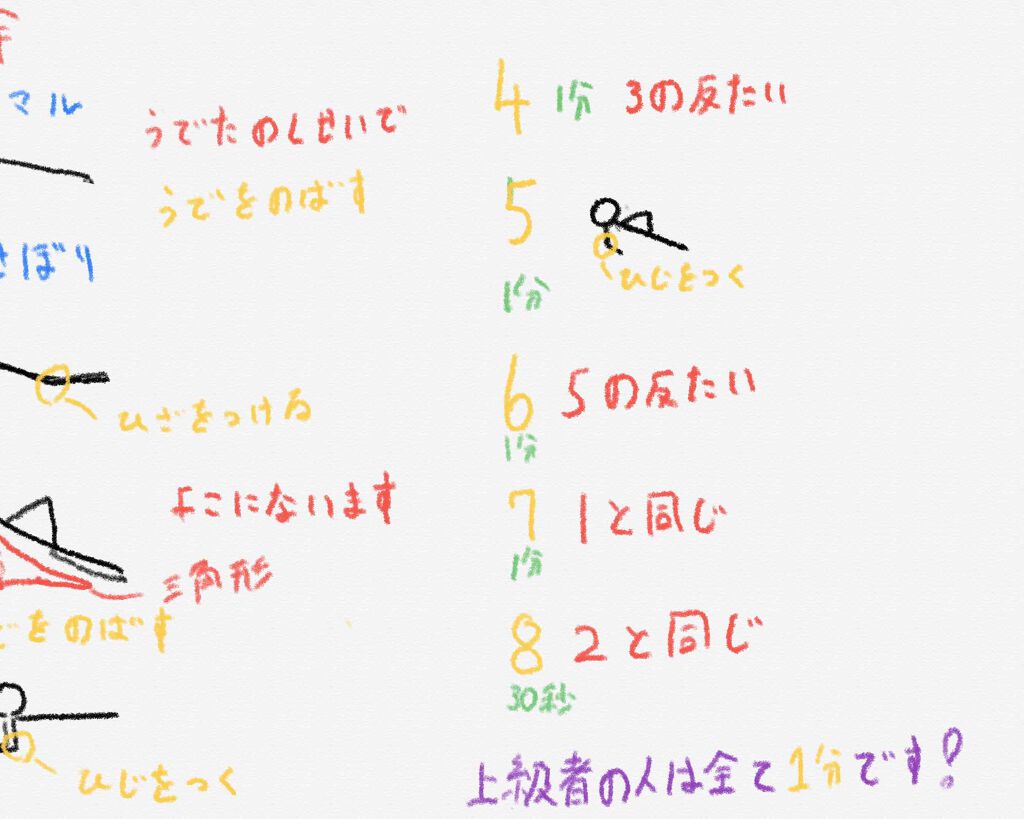 マル
うでたのしせいで
うでをのばす
さぼり
ひざをつける
よこにないます
三角形
をのばす
ひじをつく
4 1分 3の反たい
5
1分
ひじをつく
6 5の反たい
1分
7 1と同じ
1分
8 2と同じ
30秒
上級者の人は全て1分です!